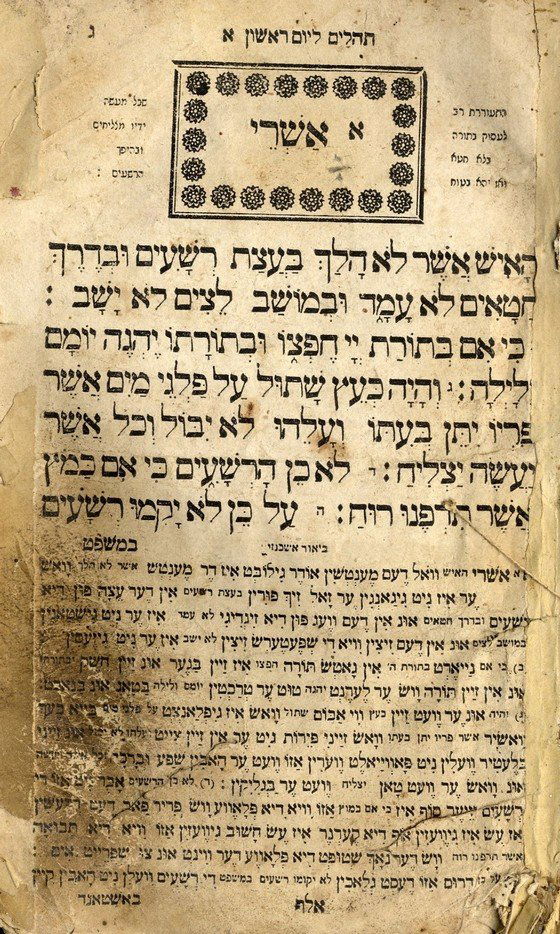 תהלים ליום ראשון א
ג
בהתעוררת רב
לעסוק בתורה
בלא חטא
ואז יהא בטוח
א אשרי
שכל מעשה
ידיו מצליחים
ובהיפך
הרשעים :
הָאִישׁ אֲשֶׁר לֹא הָלַךְ בַּעֲצַת רְשָׁעִים וּבְדֶרֶךְ
חַטָּאִים לֹא עָמָד וּבְמוֹשַׁב לֵצִים לֹא יָשָׁב :
כִּי אִם בְּתוֹרַת יְיָ חֶפְצוֹ וּבְתוֹרָתוֹ יֶהְגֶּה יוֹמָם
וָלָיְלָה : ג וְהָיָה כְּעֵץ שָׁתוּל עַל פַּלְגֵי מַיִם אֲשֶׁר
פִּרְיוֹ יִתֵּן בְּעִתּוֹ וְעָלֵהוּ לֹא יִבּוֹל וְכֹל אֲשֶׁר
יַעֲשֶׂה יַצְלִיחַ : ד לֹא כֵן הָרְשָׁעִים כִּי אִם כַּמֹּץ
אֲשֶׁר תִּדְּפֶנּוּ רוּחַ : ה עַל כֵּן לֹא יָקֻמוּ רְשָׁעִים
במשפט
ביאור אשכנזי
א אשרי האיש וואל דעם מענטשין אודר גילובט איז דר מענטש אשר לא הלך וואש
ער איז ניט גיגאנגין ער זאל זיך פירין בעצת רשעים אין דער עצה פון דיא
רשעים ובדרך חטאים אונ אין דעם וועג פון דיא זינדיגי לא עמד איז ער ניט גישטאנין
ובמושב לצים אונ אין דעם זיצין וויא די שפעטערש זיצין לא ישב איז ער ניט גיזעסין
(ב) כי אם נייארט בתורת ה' אין גאטש תורה חפצו איז זיין בגער אונ זיין חשק ובתורתו
אונ אין זיין תורה וואש ער לערנט יהגה טוט ער טרכטין יומם ולילה בטאג אונ בנאכט
(ג) והיה אונ ער וועט זיין כעץ וויא איין בוים שתול וואש איז גיפלאנצט על פלגי מים בייא בעך
וואשיר אשר פריו יתן בעתו וואש זייני פירות גיט ער אין זיין צייט ועלהו לא יבול אונ זייני
בלעטיר וועלין ניט
אונ וואש ער וועט טאן יצליח וועט ער בגליקין : (ד) לא כן הרשעים אבר ניט אזו די
רשעים זייער סוף איז כי אם כמוץ אזו וויא דיא פלאווע
אז עש איז גיוועזין אויף דיא קערנר איז עש חשוב גיוועזין אזו וויא דיא תבואה
אשר תדפנו רוח וואש דערנאך שטופט דיא פלאווע דער ווינט אונ צו שפרייט אים :
על כן דרום אזו דעסט גלאכין לא יקומו רשעים במשפט די רשעים וועלין ניט האבין קיין
אלף באשטאנד